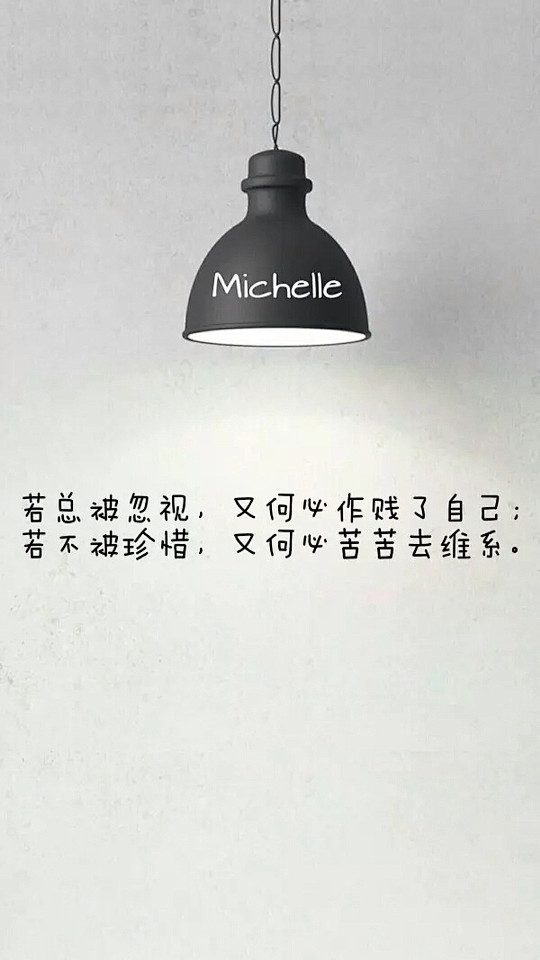 Michelle
若总被忽视，又何必作贱了自己；
若不被珍惜，又何必苦苦去维系。